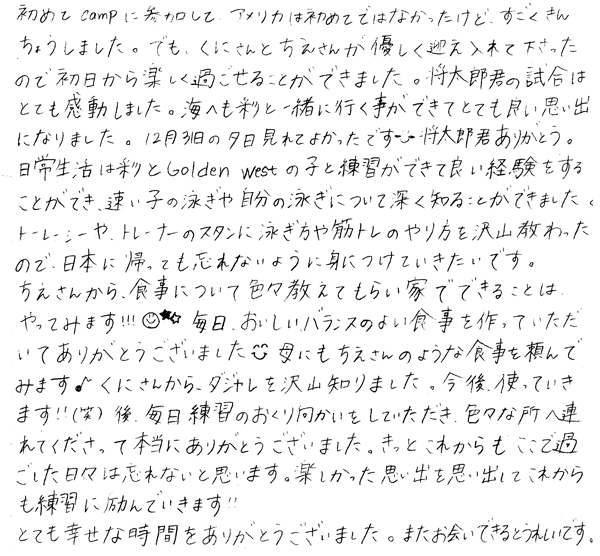 初めて campに参加して、アメリカは初めてではなかったけど、すごくきん
ちょうしました。でも、くにさんとちえさんが優しく迎え入れて下さった
ので初日から楽しく過ごせることができました。将太郎君の試合は
とても感動しました。海へも彩と一緒に行く事ができてとても良い思い出
になりました。12月31日の夕日見れてよかったです 将太郎君ありがとう。
日常生活は彩とGolden westの子と練習ができて良い経験をする
ことができ、速い子の泳ぎや自分の泳ぎについて深く知ることができました。
トレーシーや、トレーナーのスタンに泳ぎ方や筋トレのやり方を沢山教わった
ので、日本に帰っても忘れないように身につけていきたいです。
ちえさんから、食事について色々教えてもらい家でできることは、
やってみます!!!☺★☆ 毎日、おいしいバランスのよい食事を作っていただ
いてありがとうございました☺ 母にもちえさんのような食事を頼んで
みます♪ くにさんから、ダジャレを沢山知りました。今後、使っていき
ます!!(笑) 後、毎日練習のおくり向かいをしていただき、色々な所へ連
れてくださって本当にありがとうございました。きっとこれからもここで過
ごした日々は忘れないと思います。楽しかった思い出を思い出してこれから
も練習に励んでいきます!!
とても幸せな時間をありがとうございました。またお会いできるとうれしいです。